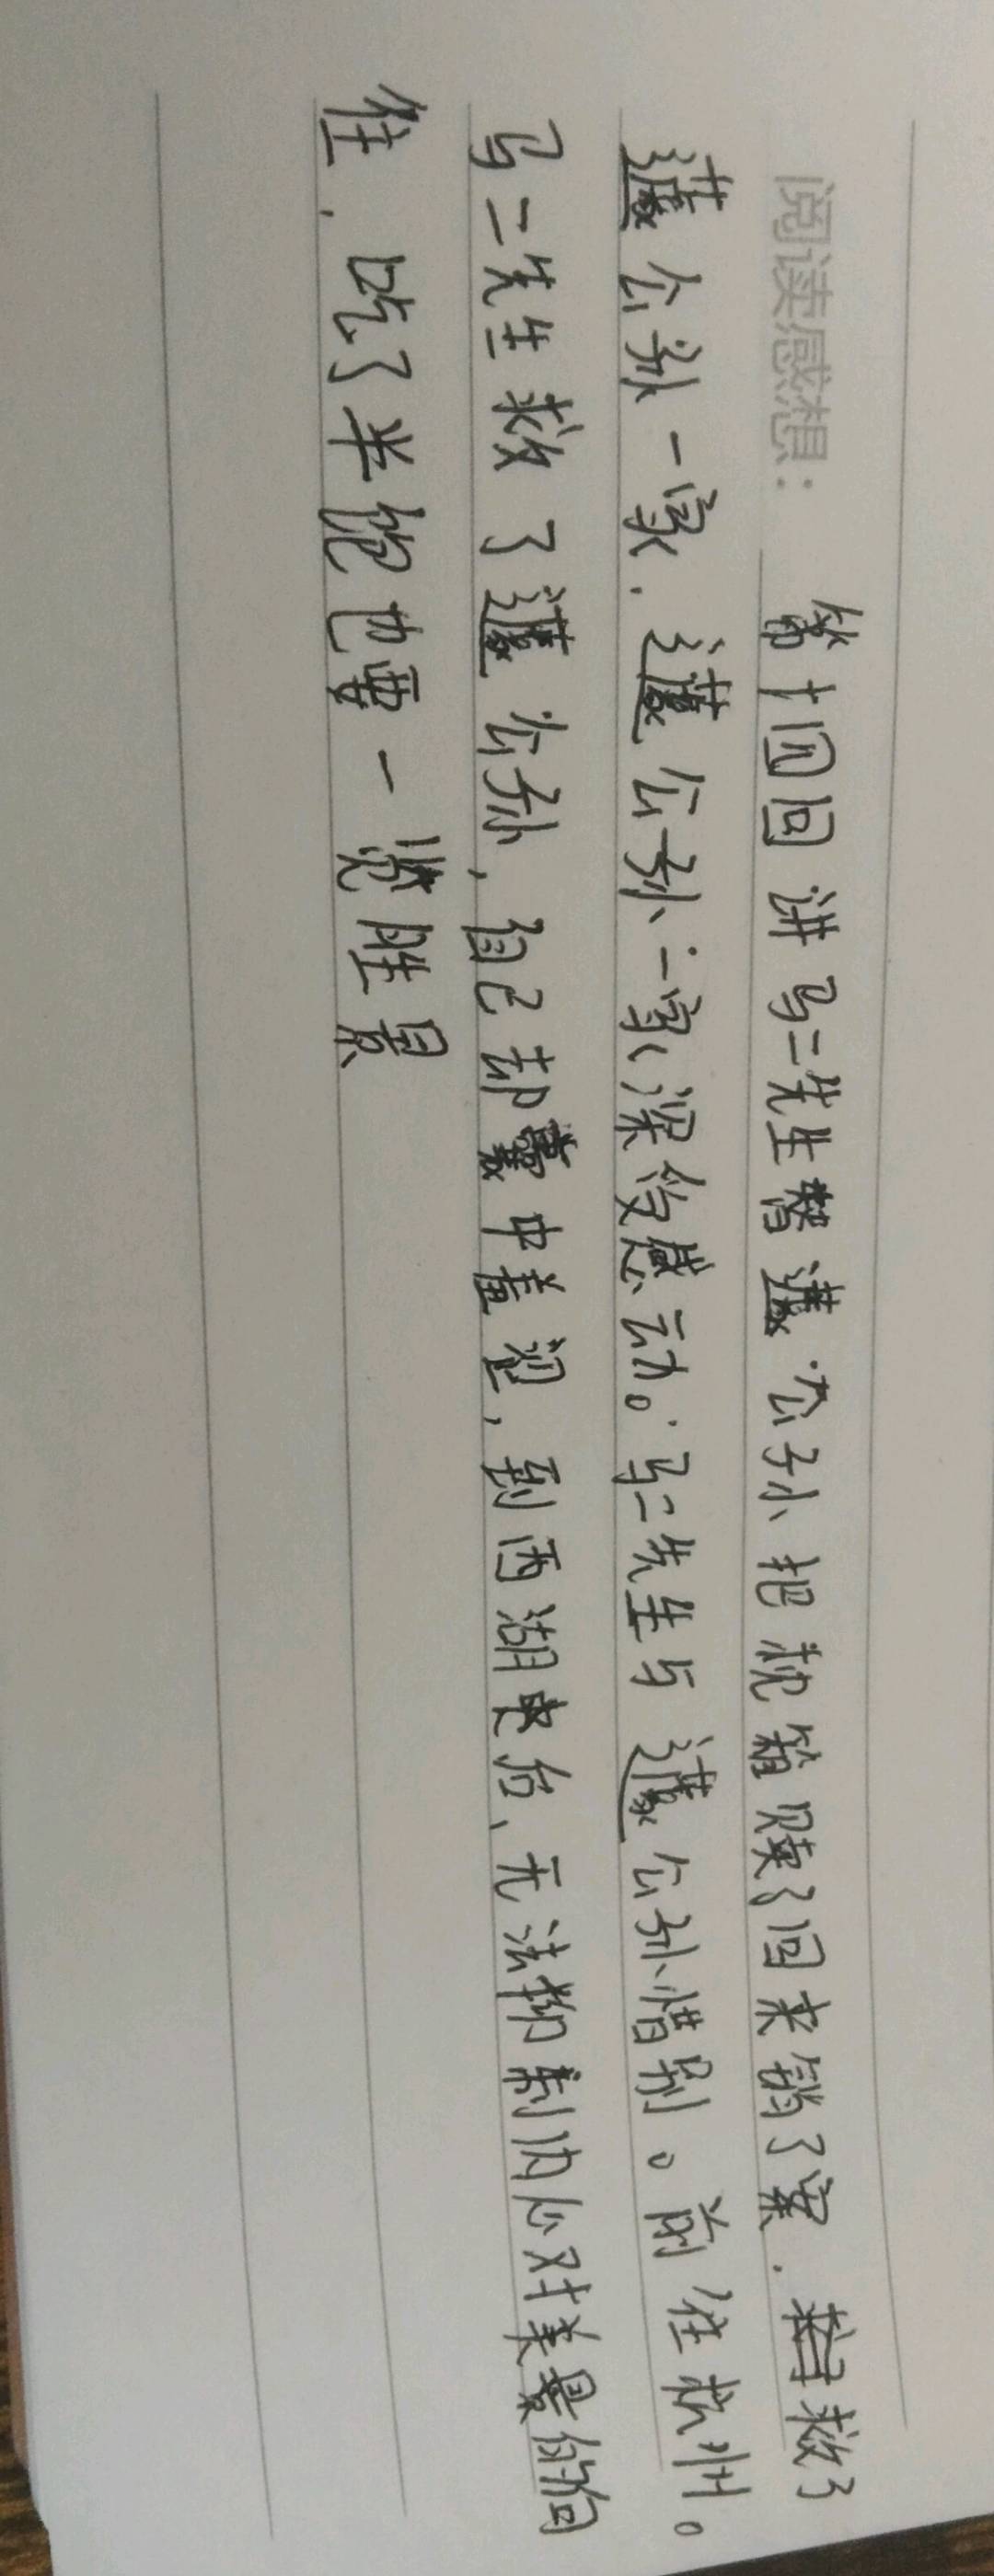 阅读感想：第十四回讲马二先生替蘧公孙把枕箱赎了回来销了案．救了
蘧公孙一家．蘧公孙一家深受感动。马二先生与蘧公孙惜别。前往杭州。
马二先生救了蘧公孙，自己却囊中羞涩，到西湖边后、无法抑制内心对美景的向
往．吃了半饱也要一览胜景